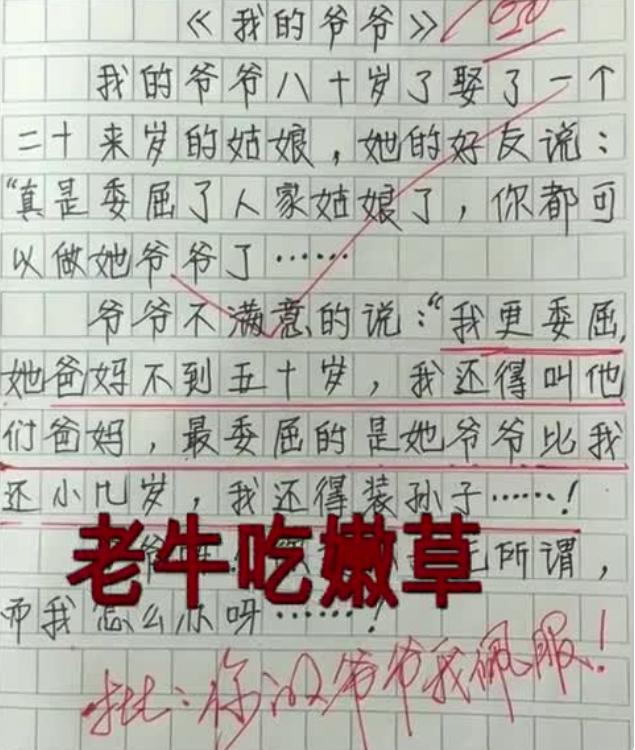 《我的爷爷》
我的爷爷八十岁了娶了一个
二十来岁的姑娘，她的好友说：
“真是委屈了人家姑娘了，你都可
以做她爷爷了……
爷爷不满意的说：“我更委屈，
她爸妈不到五十岁，我还得叫他
们爸妈，最委屈的是她爷爷比我
还小几岁，我还得装孙子……！
老牛吃嫩草
无所谓，
而我怎么办呀……！
批：你的爷爷我佩服！